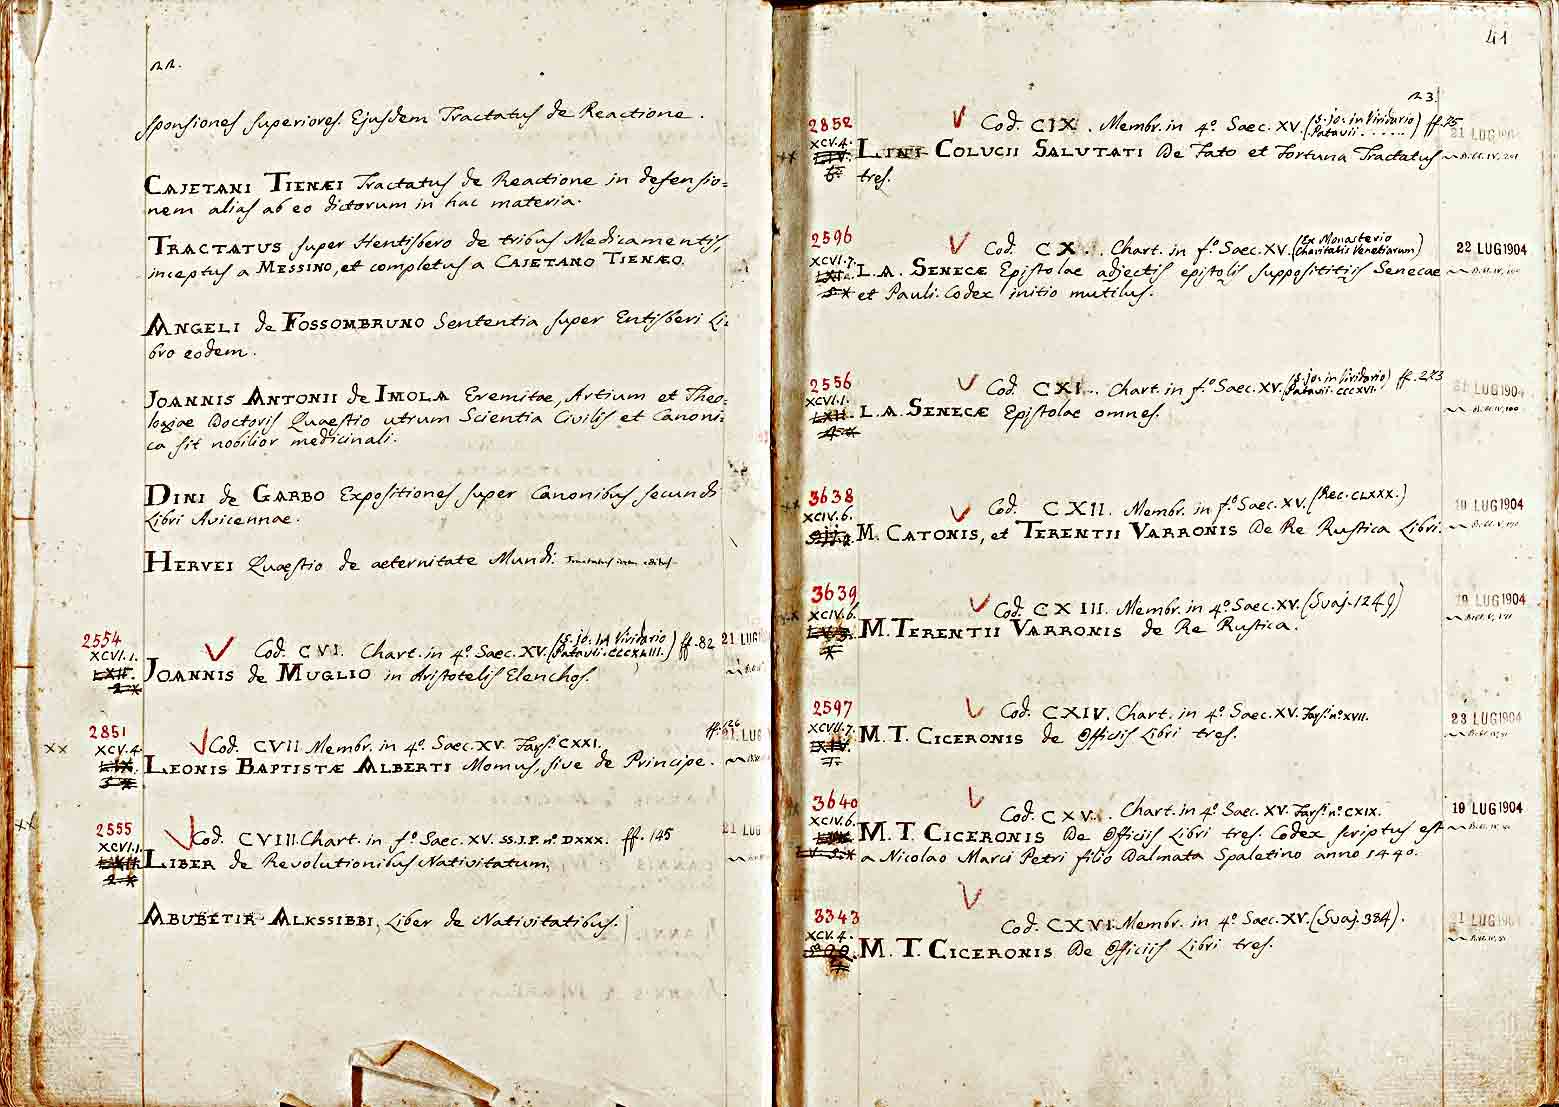 22.
sponsiones superiores. Ejusdem Tractatus de Reactione.
CAJETANI TIENÆI Tractatus de Reactione in defensio=
nem alias ab eo dictorum in hac materia.
TRACTATUS super Hentisbero de tribus Medicamentis,
inceptus a MESSINO, et completus a CAJETANO TIENÆO.
ANGELI de FOSSOMBRUNO Sententia super Entisberi Li=
bro eodem.
JOANNIS ANTONII de IMOLA Eremitae, Artium et Theo=
logiae Doctoris Quaestio utrum Scientia Civilis et Canoni=
ca sit nobilior medicinali.
DINI de GARBO Expositiones super Canonibus secundi
Libri Avicennae.
HERVEI Quaestio de aeternitate Mundi.
2554
XCVI.1.
Cod. CVI. Chart. in 4º. Saec. XV. (S. Jo. in Viridario Patavii. CCCXLIII.) ff. 82 21 LUG
JOANNIS de MUGLIO in Aristotelis Elenchos.
2851
XX XCV.4.
Cod. CVII Membr. in 4º. Saec. XV. Fars. CXXI. ff. 126 21 LUG
LEONIS BAPTISTÆ ALBERTI Momus, sive de Principe.
XX 2555
XCVI.1.
Cod. CVIII. Chart. in fº. Saec. XV. SS.I.P. nº. DXXX. ff. 145 21 LUG
LIBER de Revolutionibus Nativitatum,
ABUBETIR ALKSSIBBI, Liber de Nativitatibus.
41
23.
2852
XCV.4.
Cod. CIX. Membr. in 4º. Saec. XV. (S. Jo. in Viridario Patavii.....) ff. 75 21 LUG 1904
XX LINI COLUCII SALUTATI De Fato et Fortuna Tractatus
tres.
2596
XCVI.7.
Cod. CX. Chart. in fº. Saec. XV. (Ex Monasterio Charitatis Venetiarum) 22 LUG 1904
L. A. SENECÆ Epistolae adjectis epistolis supposititiis Senecae
et Pauli. Codex initio mutilus.
2556
XCVI.1.
Cod. CXI. Chart. in fº. Saec. XV. (S. Jo. in Viridario Patavii. CCCXVI.) ff. 223 21 LUG 1904
L. A. SENECÆ Epistolae omnes.
XX 3638
XCIV.6.
Cod. CXII. Membr. in fº. Saec. XV. (Rec. CLXXX.) 19 LUG 1904
M. CATONIS, et TERENTII VARRONIS De Re Rustica Libri.
3639
XX XCIV.6.
Cod. CXIII. Membr. in 4º. Saec. XV. (Svaj. 1249) 19 LUG 1904
M. TERENTII VARRONIS de Re Rustica.
2597
XCVII.7.
Cod. CXIV. Chart. in 4º. Saec. XV. Fars. nº. XVII. 23 LUG 1904
M. T. CICERONIS de Officiis Libri tres.
3640
XCIV.6.
Cod. CXV. Chart. in 4º. Saec. XV. Fars. nº. CXIX. 19 LUG 1904
M. T. CICERONIS De Officiis Libri tres. Codex scriptus est
a Nicolao Marci Petri filio Dalmata Spaletino anno 1440.
3343
XCV.4.
Cod. CXVI. Membr. in 4º. Saec. XV. (Svaj. 384). 21 LUG 1904
M. T. CICERONIS De Officiis Libri tres.